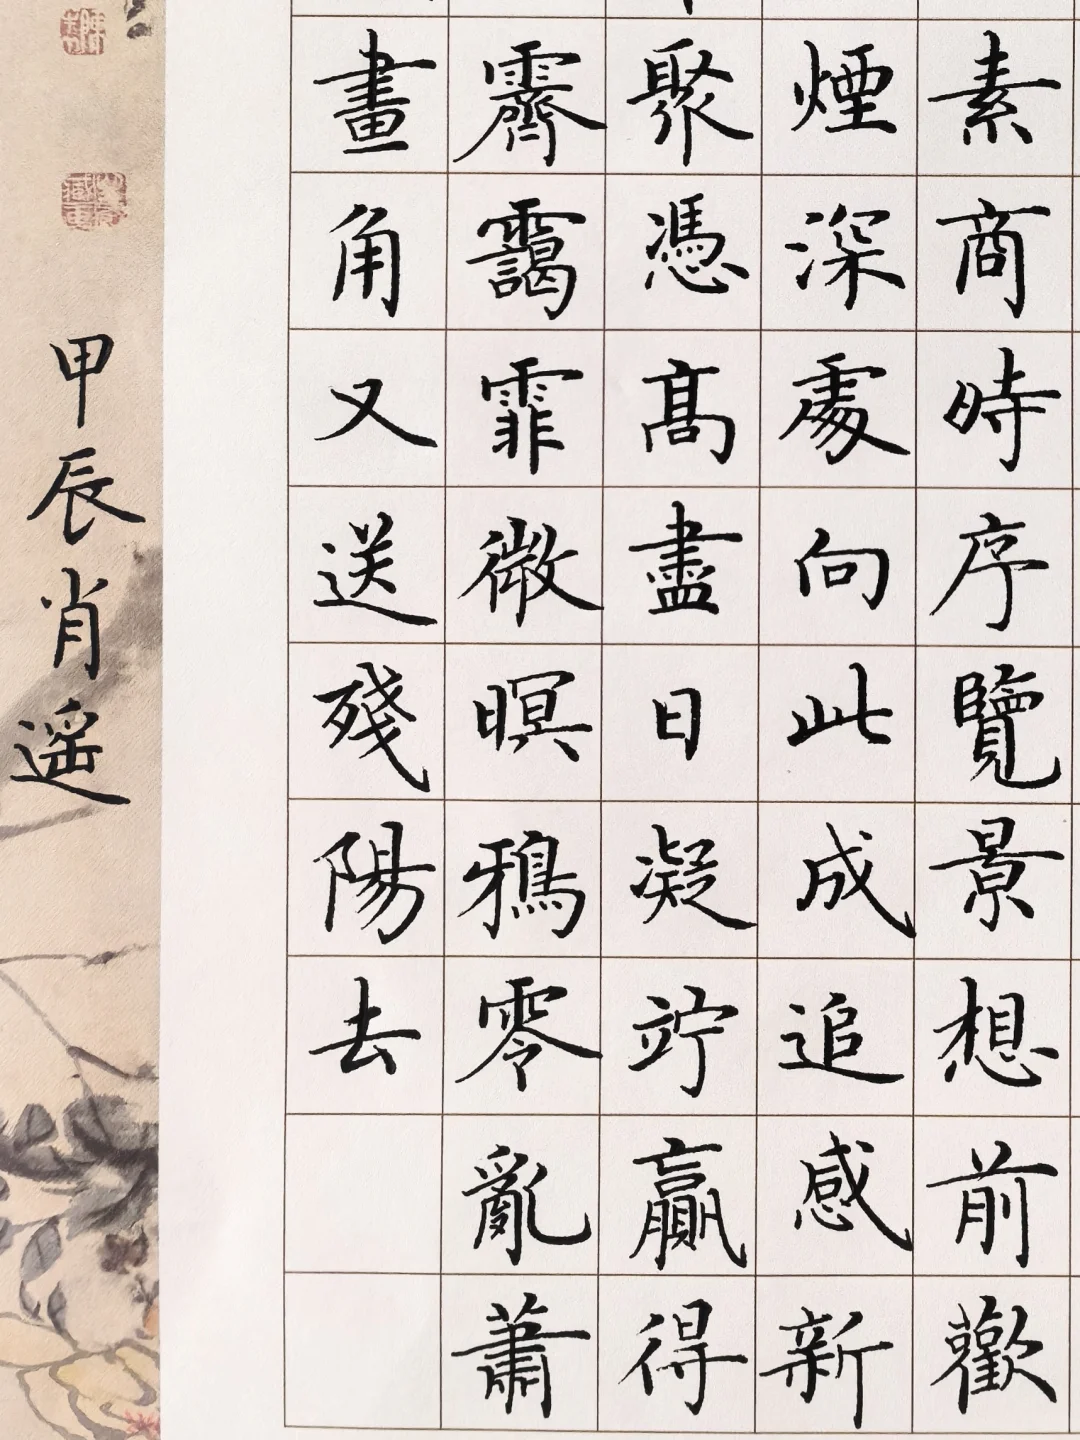 素商時序覽景想前歡
煙深處向此成追感新
聚憑高盡日凝竚贏得
霽靄霏微暝鴉零亂蕭
畫角又送殘陽去
甲辰肖遥